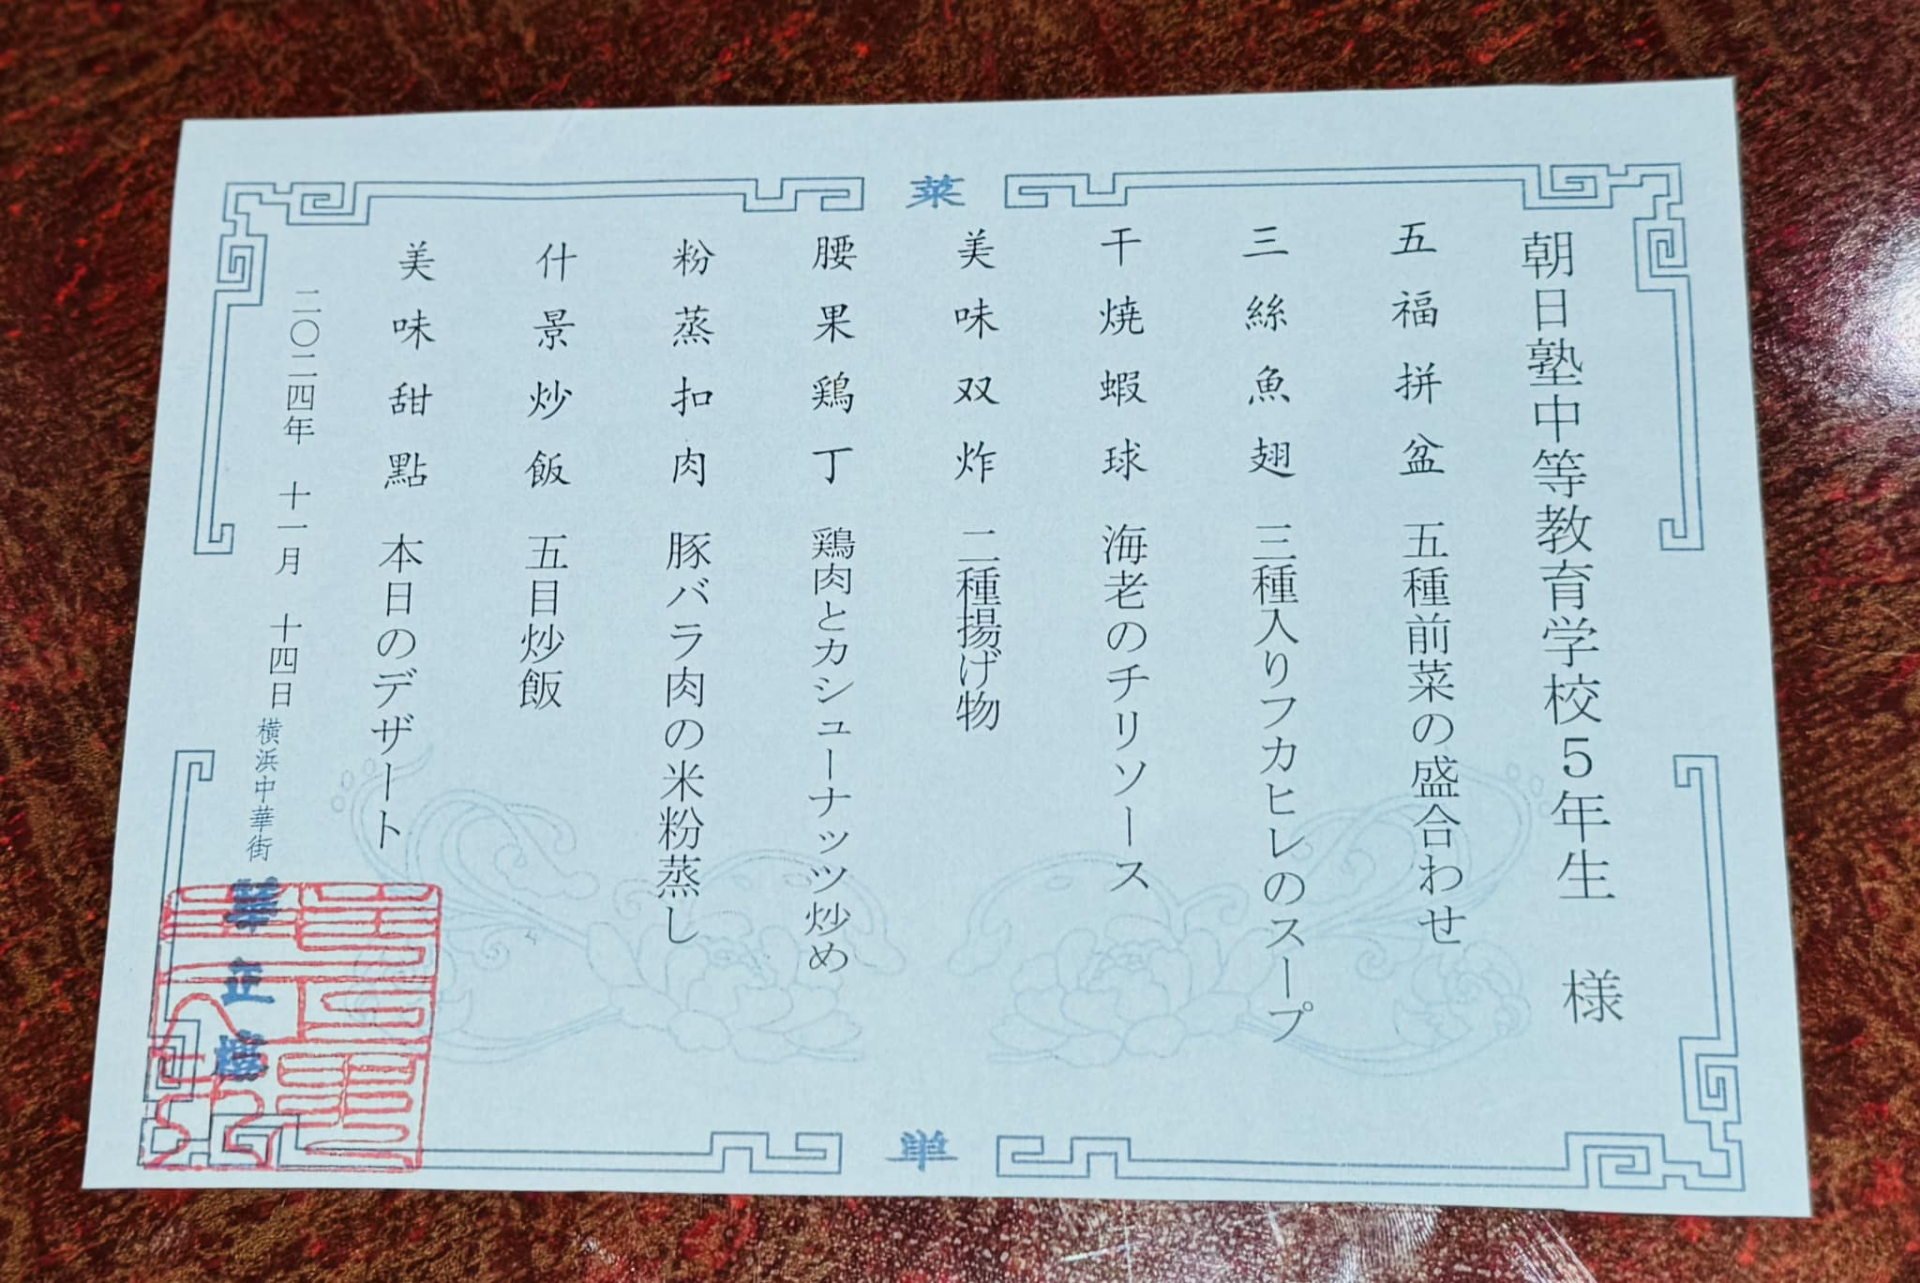 菜
朝日塾中等教育学校５年生 様
五福拼盆 五種前菜の盛合わせ
三絲魚翅 三種入りフカヒレのスープ
干焼蝦球 海老のチリソース
美味双炸 二種揚げ物
腰果鶏丁 鶏肉とカシューナッツ炒め
粉蒸扣肉 豚バラ肉の米粉蒸し
什景炒飯 五目炒飯
美味甜點 本日のデザート
二〇二四年 十一月 十四日
横浜中華街 華正樓
単